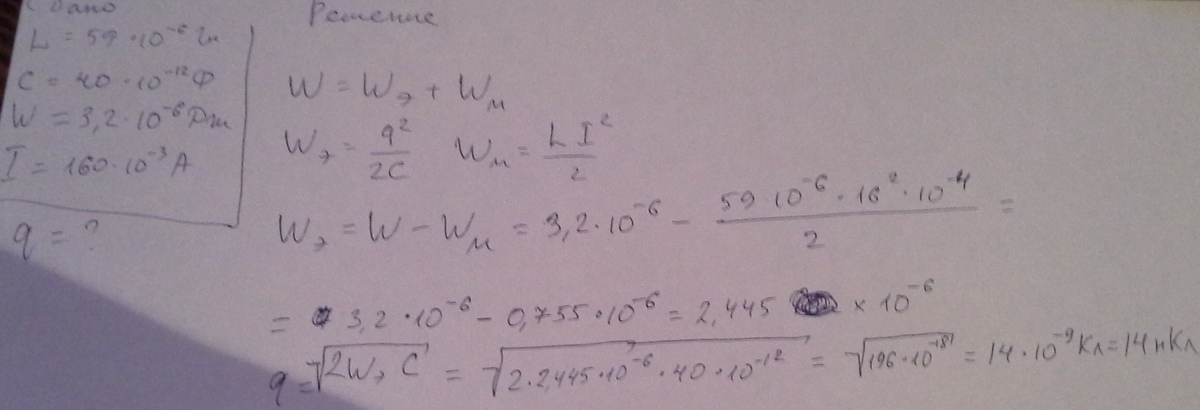 Дано
L = 59 · 10⁻⁶ Гн
C = 40 · 10⁻¹² Ф
W = 3,2 · 10⁻⁶ Дж
I = 160 · 10⁻³ А
q = ?
Решение
W = Wэ + Wм
Wэ = q²/2C Wм = LI²/2
Wэ = W − Wм = 3,2 · 10⁻⁶ − 59 · 10⁻⁶ · 16² · 10⁻⁴/2 =
= 3,2 · 10⁻⁶ − 0,755 · 10⁻⁶ = 2,445 × 10⁻⁶
q = √2Wэ C = √2 · 2,445 · 10⁻⁶ · 40 · 10⁻¹² = √196 · 10⁻¹⁸ = 14 · 10⁻⁹ Кл = 14 нКл